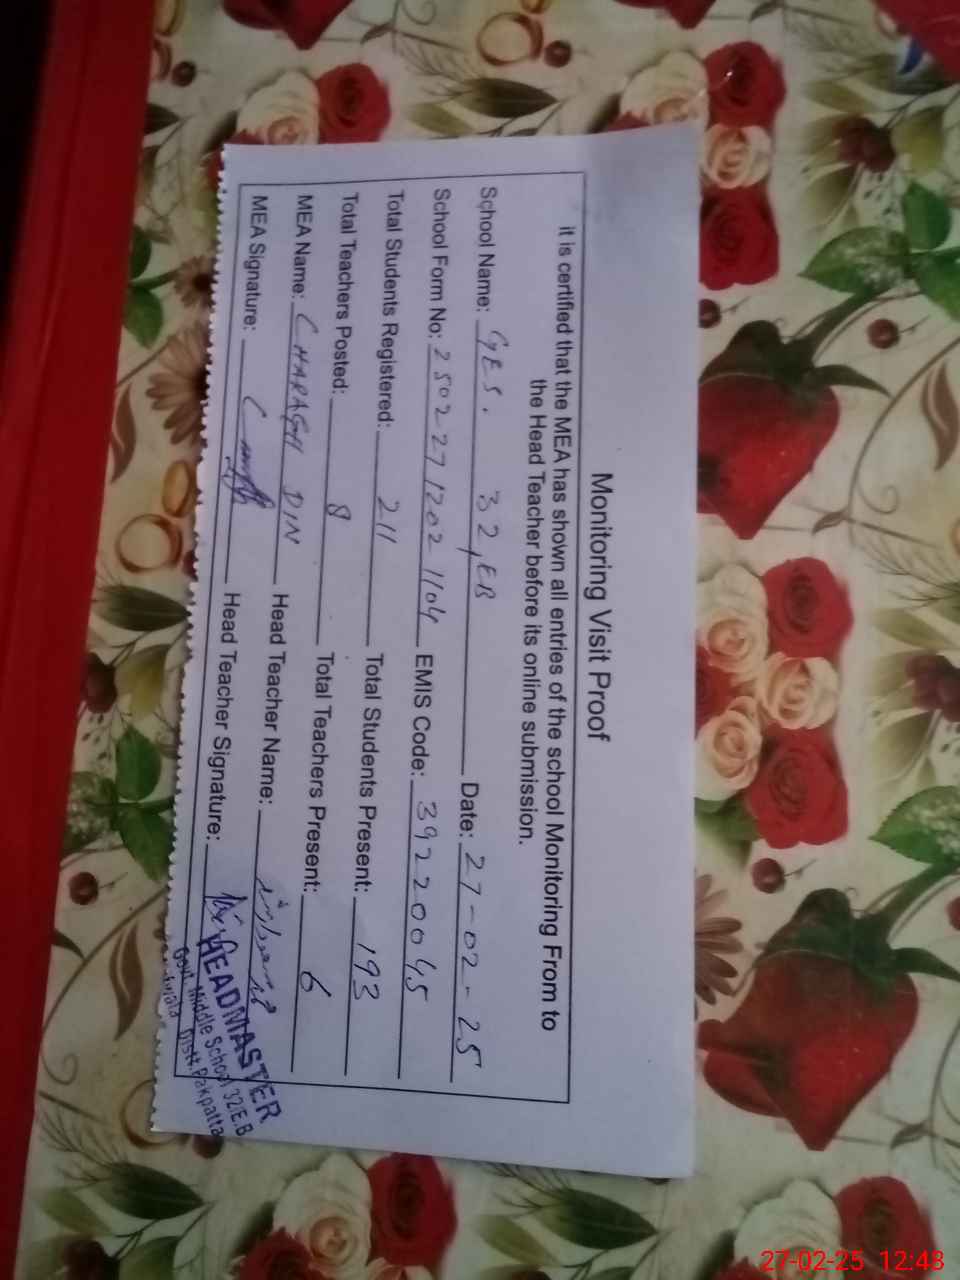 Monitoring Visit Proof
it is certified that the MEA has shown all entries of the school Monitoring From to
the Head Teacher before its online submission.
School Name: GES. 32,EB Date: 27-02-25
School Form No: 2502271202 1104 EMIS Code: 39220045
Total Students Registered: 211 Total Students Present: 193
Total Teachers Posted: 8 Total Teachers Present: 6
MEA Name: CHARAGH DIN Head Teacher Name:
MEA Signature: Head Teacher Signature:
HEADMASTER
Govt. Middle School 32/E.B
Distt. Pakpatta
27-02-25 12:48